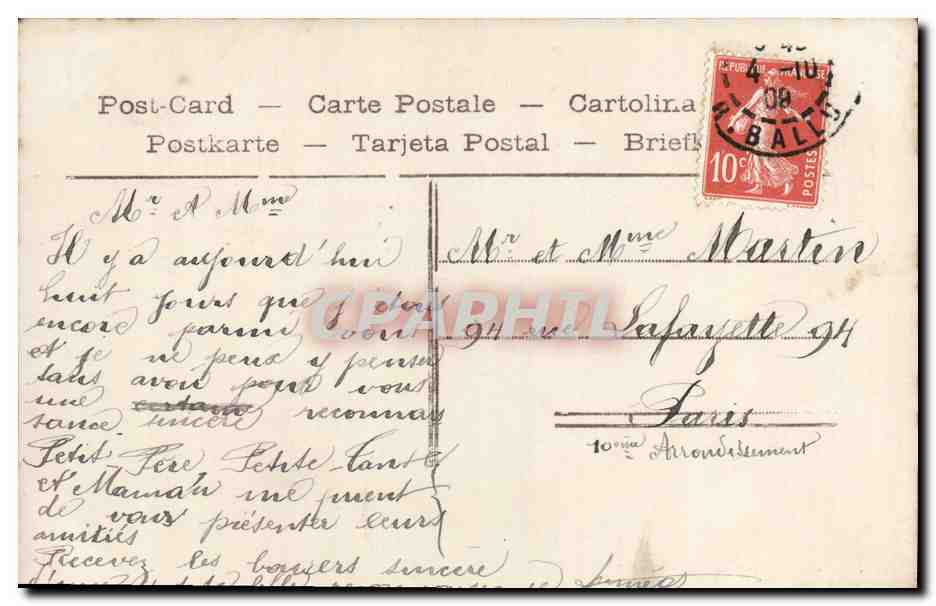 Post-Card — Carte Postale — Cartolina
Postkarte — Tarjeta Postal — Briefk
REPUBLIQUE FRANÇAISE
10c
POSTES
4 -10
09
BALL
Mr et Mme
Il y a aujourd'hui
huit jours que j'étais
encore parmi vous
et je ne peux y penser
sans avoir pour vous
une certaine reconnais
sance sincère
Petit Père Petite Tante
et Maman me
de vous présenter leurs
amitiés
Recevez les baisers sincère
Mr et Mme Martin
94 rue Lafayette 94
Paris
10ème Arrondissement
CPAPHIL